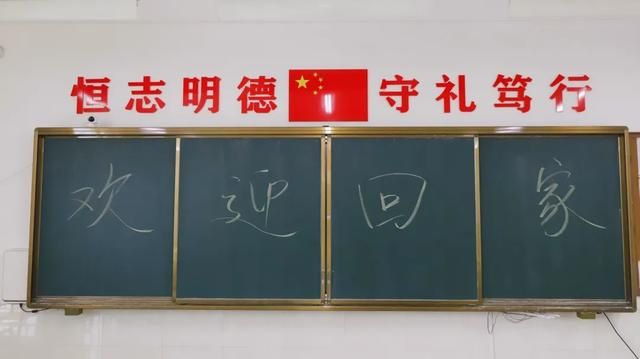 恒志明德 守礼笃行
欢迎回家